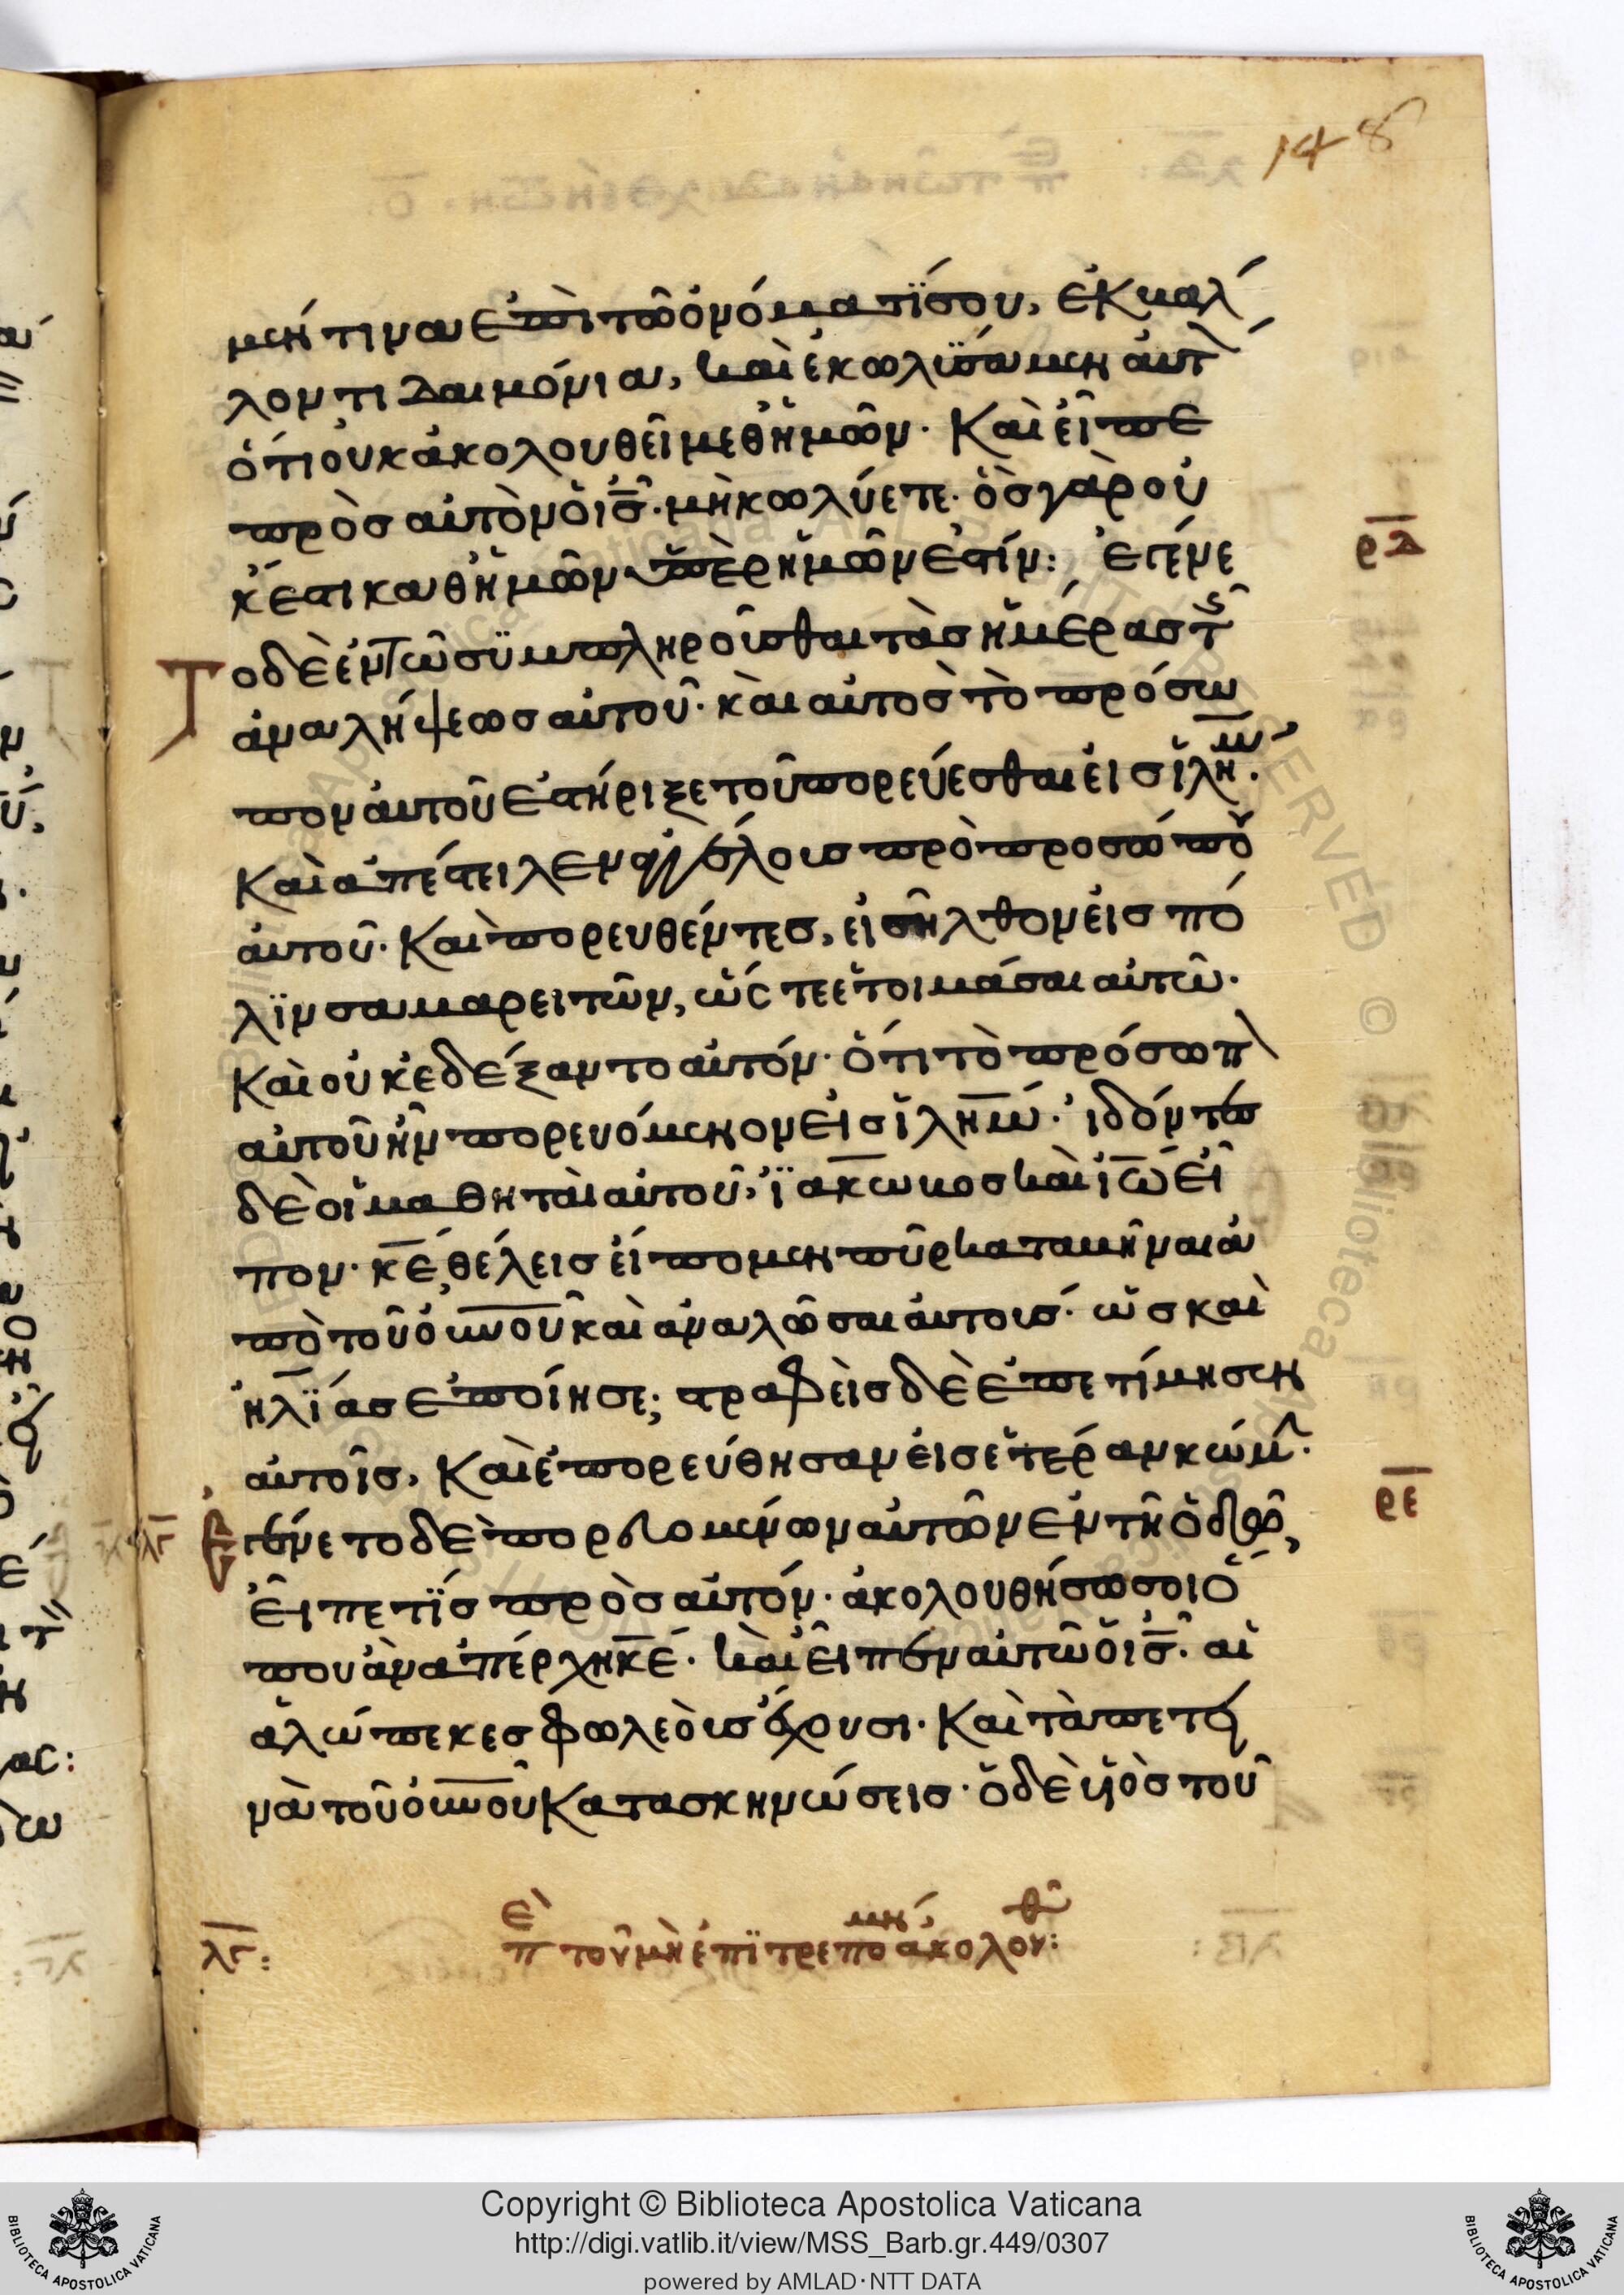 148
μέν τινα ἐπὶ τῶ ὀνόματί σου, ἐκβάλ
λοντα δαιμόνια, καὶ ἐκωλύσαμεν αὐτ
ὅτι οὐκ ἀκολουθεῖ μεθ ἡμῶν. Καὶ εἶπε
πρὸς αὐτὸν ὁ ις. μὴ κωλύετε. ὃς γὰρ οὐ
κ ἔστι καθ ἡμῶν ὑπὲρ ἡμῶν ἐστίν: ἐγένε
ρδ
το δὲ ἐν τῶ συμπληροῦσθαι τὰς ἡμέρας τ
ἀναλήψεως αὐτοῦ. καὶ αὐτὸς τὸ πρόσω
πον αὐτοῦ ἐστήριξε τοῦ πορεύεσθαι εἰς ιλημ.
Καὶ ἀπέστειλεν ἀγγέλους πρὸ προσώπου
αὐτοῦ. Καὶ πορευθέντες, εἰσῆλθον εἰς πό
λιν σαμαρειτῶν, ὥστε ἑτοιμάσαι αὐτῶ.
Καὶ οὐκ ἐδέξαντο αὐτόν. ὅτι τὸ πρόσωπ
αὐτοῦ ἦν πορευόμενον εἰς ιλημ. ἰδόντες
δὲ οἱ μαθηταὶ αὐτοῦ, ἰάκωβος καὶ ιω εἶ
πον. κε, θέλεις εἴπομεν πῦρ καταβῆναι ἀ
πὸ τοῦ οὐνοῦ καὶ ἀναλῶσαι αὐτούς. ὡς καὶ
ἠλίας ἐποίησε; στραφεὶς δὲ ἐπετίμησεν
αὐτοῖς, Καὶ ἐπορεύθησαν εἰς ἑτέραν κώμ.
ρε
λγ ἐγένετο δὲ πορευομένων αὐτῶν ἐν τῆ ὁδῶ,
εἶπέ τις πρὸς αὐτόν. ἀκολουθήσω σοι ὅ
που ἂν ἀπέρχη κε. καὶ εἶπεν αὐτῶ ὁ ις. αἱ
ἀλώπεκες φωλεοὺς ἔχουσι. Καὶ τὰ πετει
νὰ τοῦ οὐνοῦ Κατασκηνώσεις. ὁ δὲ υἱὸς τοῦ
λγ: πε τοῦ μὴ ἐπιτρεπομέν ἀκολουθ:
Copyright © Biblioteca Apostolica Vaticana
http://digi.vatlib.it/view/MSS_Barb.gr.449/0307
powered by AMLAD·NTT DATA